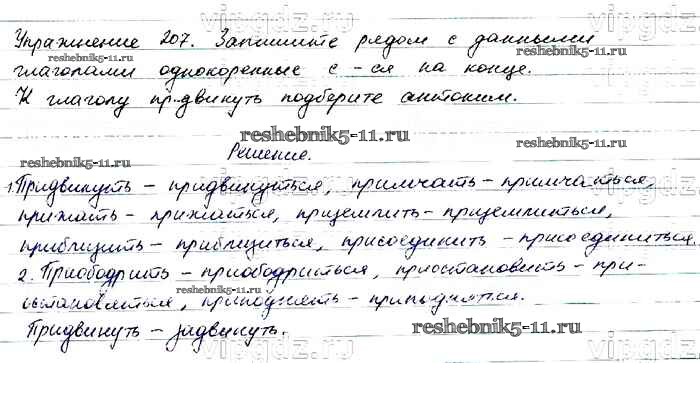 vipgdz.ru
Упражнение 207. Запишите рядом с данными
reshebnik5-11.ru reshebnik5-11.ru
глаголами однокоренные с -ся на конце.
К глаголу пр..двинуть подберите антоним.
reshebnik5-11.ru
Решение.
reshebnik5-11.ru reshebnik5-11.ru
1. Придвинуть – придвинуться, примчать – примчаться,
прижать – прижаться, приземлить – приземлиться,
приблизить – приблизиться, присоединить – присоединиться.
2. Приободрить – приободриться, приостановить – при-
reshebnik5-11.ru
остановиться, приподнять – приподняться.
Придвинуть – задвинуть.
reshebnik5-11.ru
vipgdz.ru vipgdz.ru